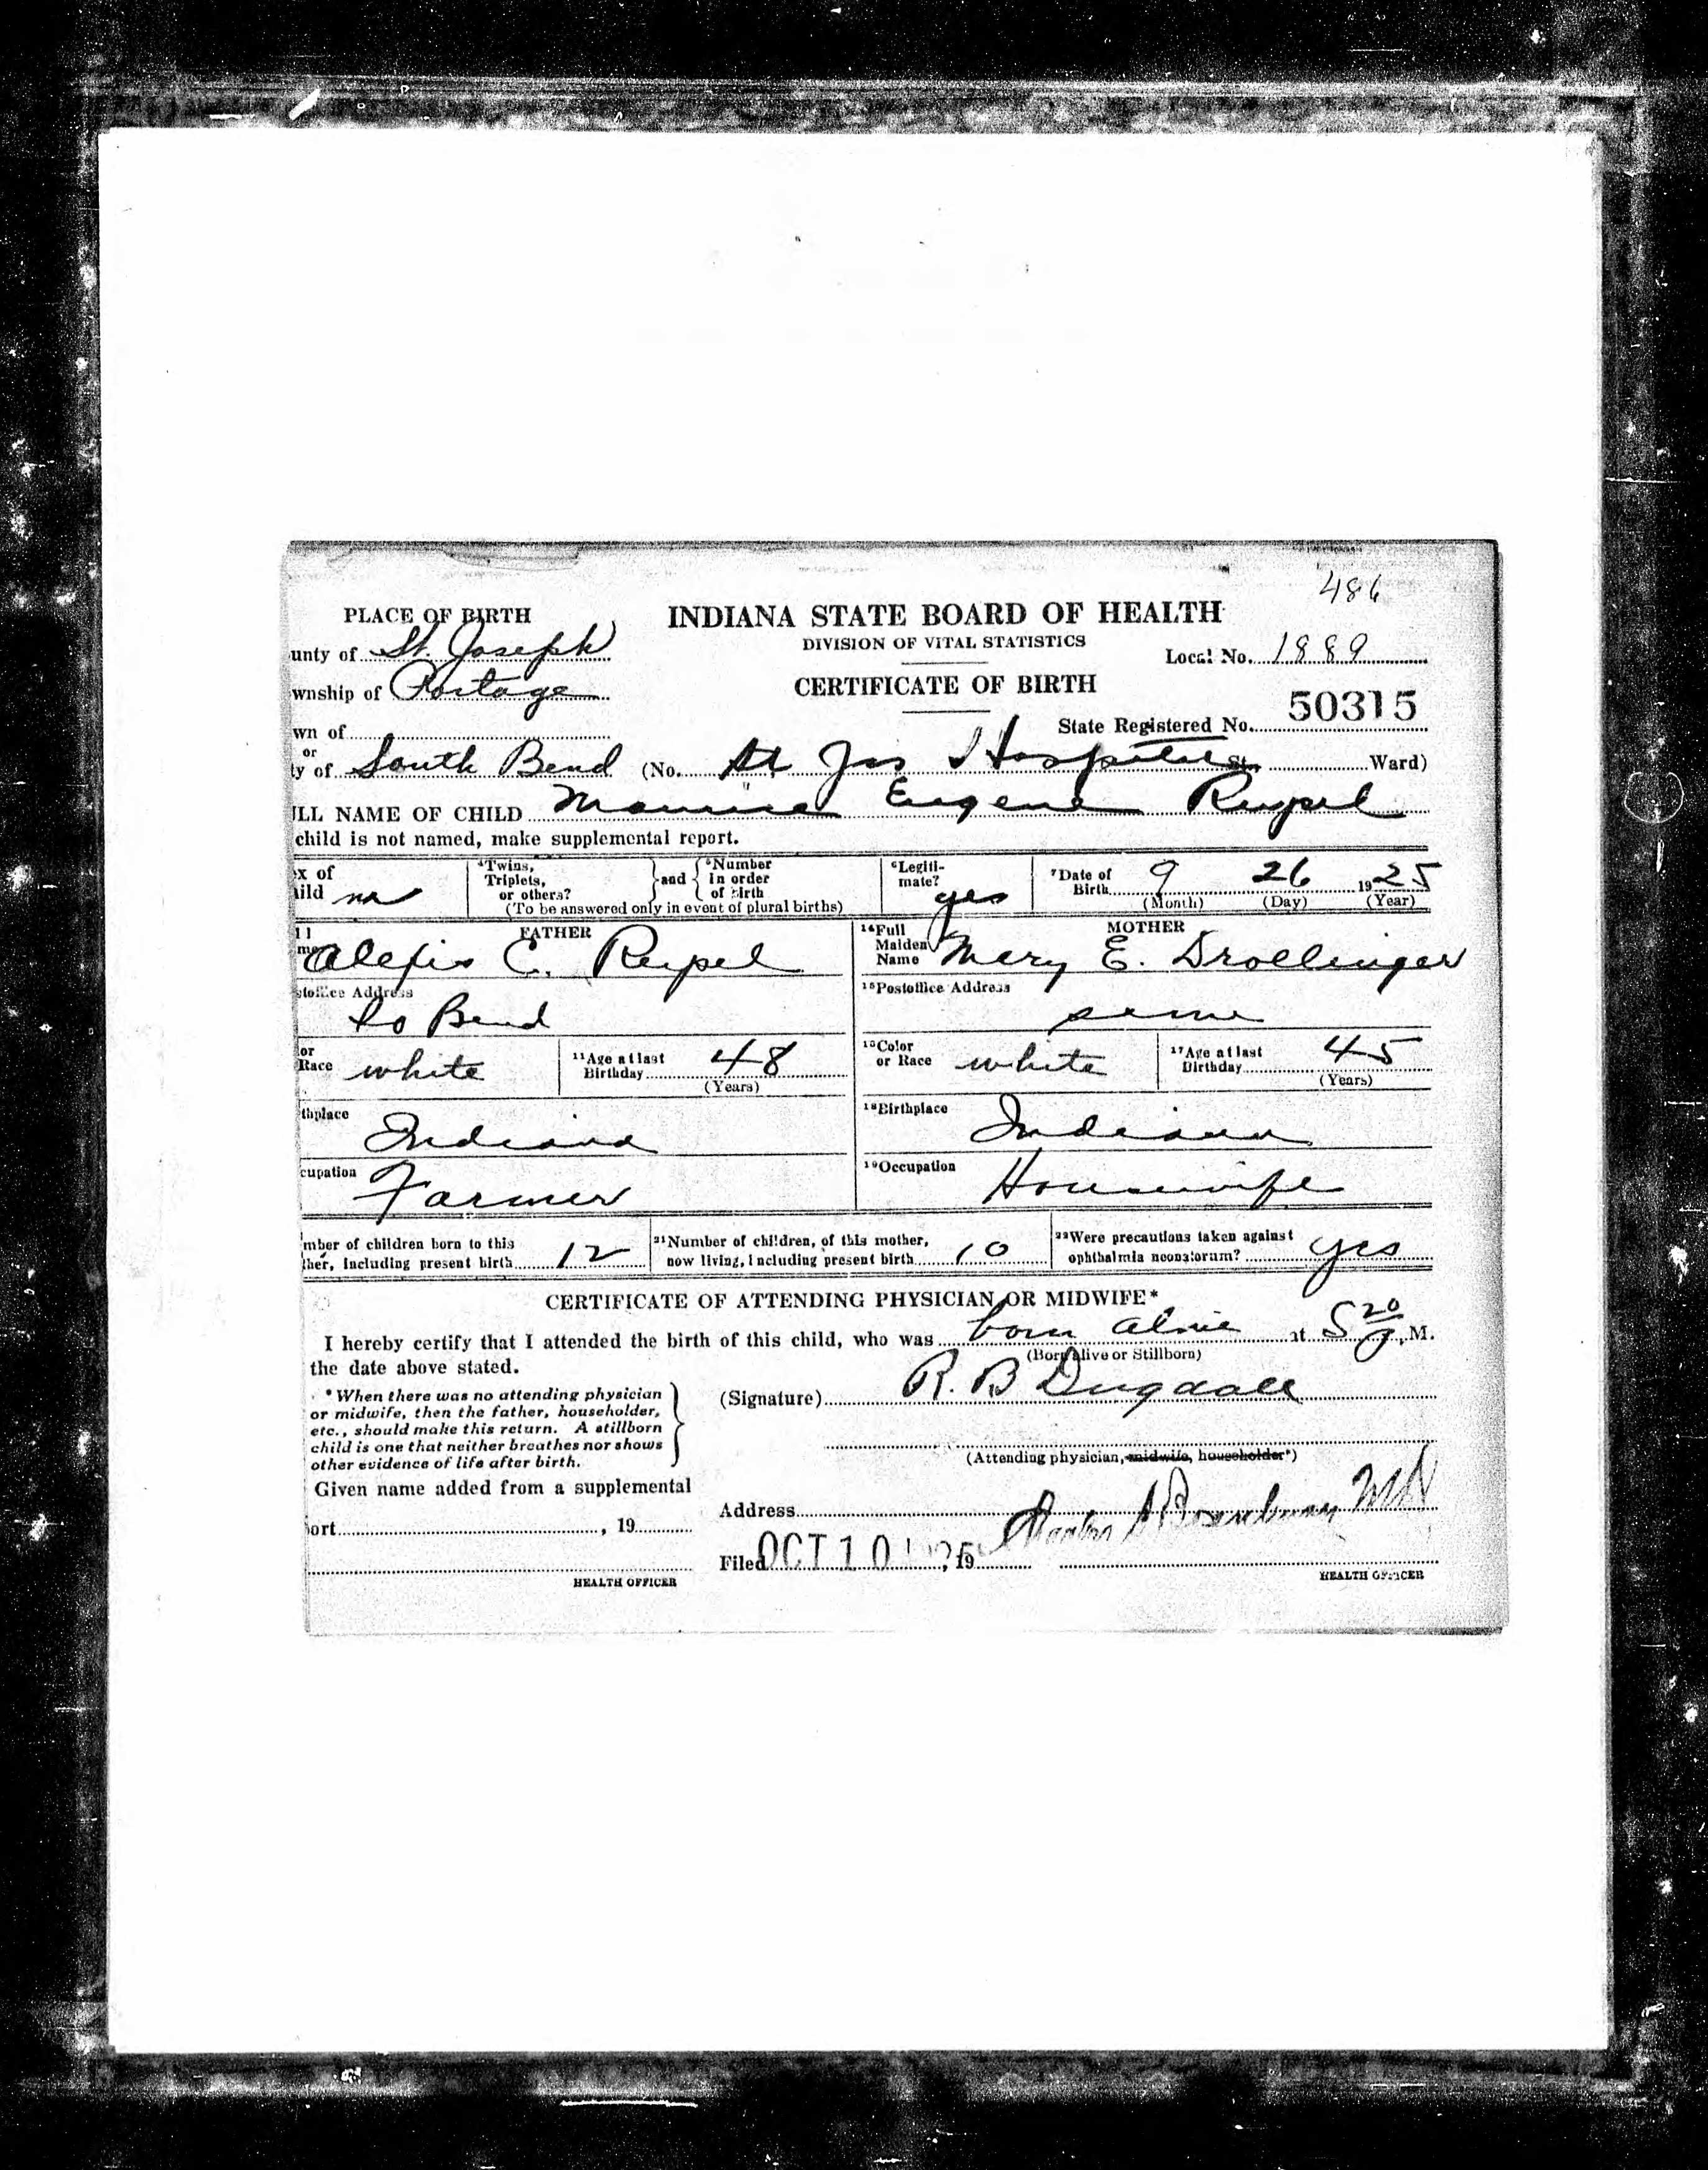 486
PLACE OF BIRTH
INDIANA STATE BOARD OF HEALTH
DIVISION OF VITAL STATISTICS
unty of St. Joseph
Local No. 1889
wnship of Portage
CERTIFICATE OF BIRTH
50315
wn of
State Registered No.
or
ty of South Bend (No. St Jos Hospital St. Ward)
ULL NAME OF CHILD Maurice Eugene
child is not named, make supplemental report.
ex of
hild
4Twins, Triplets, or others?
and
5Number in order of birth
(To be answered only in event of plural births)
6Legiti-mate? yes
7Date of Birth 9 26 1925
(Month) (Day) (Year)
FATHER
Alexis C.
14Full Maiden Name
MOTHER
Mary E. Drollinger
stoffice Address
So Bend
15Postoffice Address
same
or Race white
11Age at last Birthday 48
(Years)
16Color or Race white
17Age at last Birthday 45
(Years)
thplace
Indiana
18Birthplace
Indiana
cupation
Farmer
19Occupation
Housewife
mber of children born to this
ther, including present birth 12
21Number of children, of this mother,
now living, including present birth 10
22Were precautions taken against
ophthalmia neonatorum? yes
CERTIFICATE OF ATTENDING PHYSICIAN OR MIDWIFE*
I hereby certify that I attended the birth of this child, who was born alive at 5 20 , M.
(Born alive or Stillborn)
the date above stated.
* When there was no attending physician
or midwife, then the father, householder,
etc., should make this return. A stillborn
child is one that neither breathes nor shows
other evidence of life after birth.
(Signature) R. B Dugdale
(Attending physician, midwife, householder*)
Given name added from a supplemental
port , 19
Address
Filed OCT 10 1925, 19
HEALTH OFFICER
HEALTH OFFICER